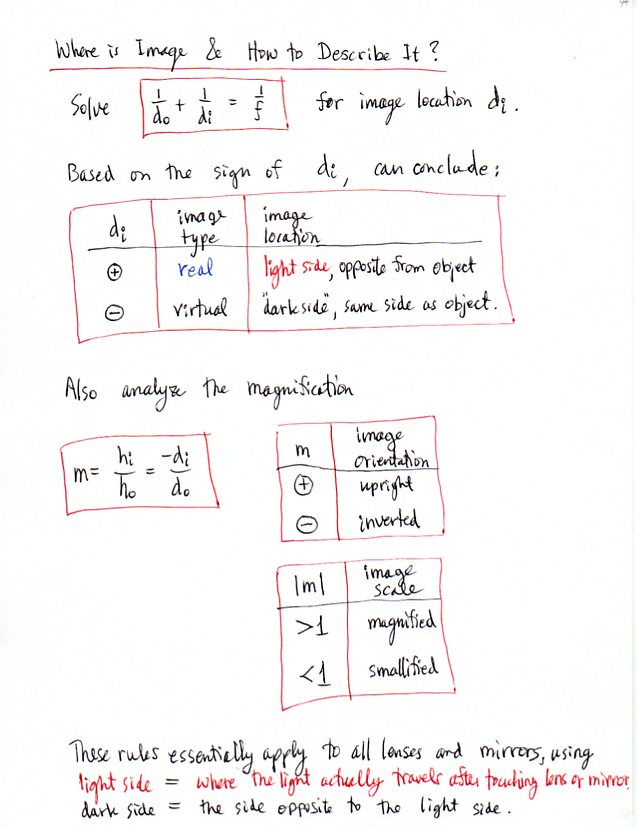 Where is Image & How to Describe It?
Solve 1/do + 1/di = 1/f for image location di.
Based on the sign of di, can conclude:
di | image type | image location
⊕ | real | light side, opposite from object
⊖ | virtual | "dark side", same side as object.
Also analyze the magnification
m = hi/ho = -di/do
m | image orientation
⊕ | upright
⊖ | inverted
|m| | image scale
>1 | magnified
<1 | smallified
These rules essentially apply to all lenses and mirrors, using
light side = where the light actually travels after touching lens or mirror.
dark side = the side opposite to the light side.